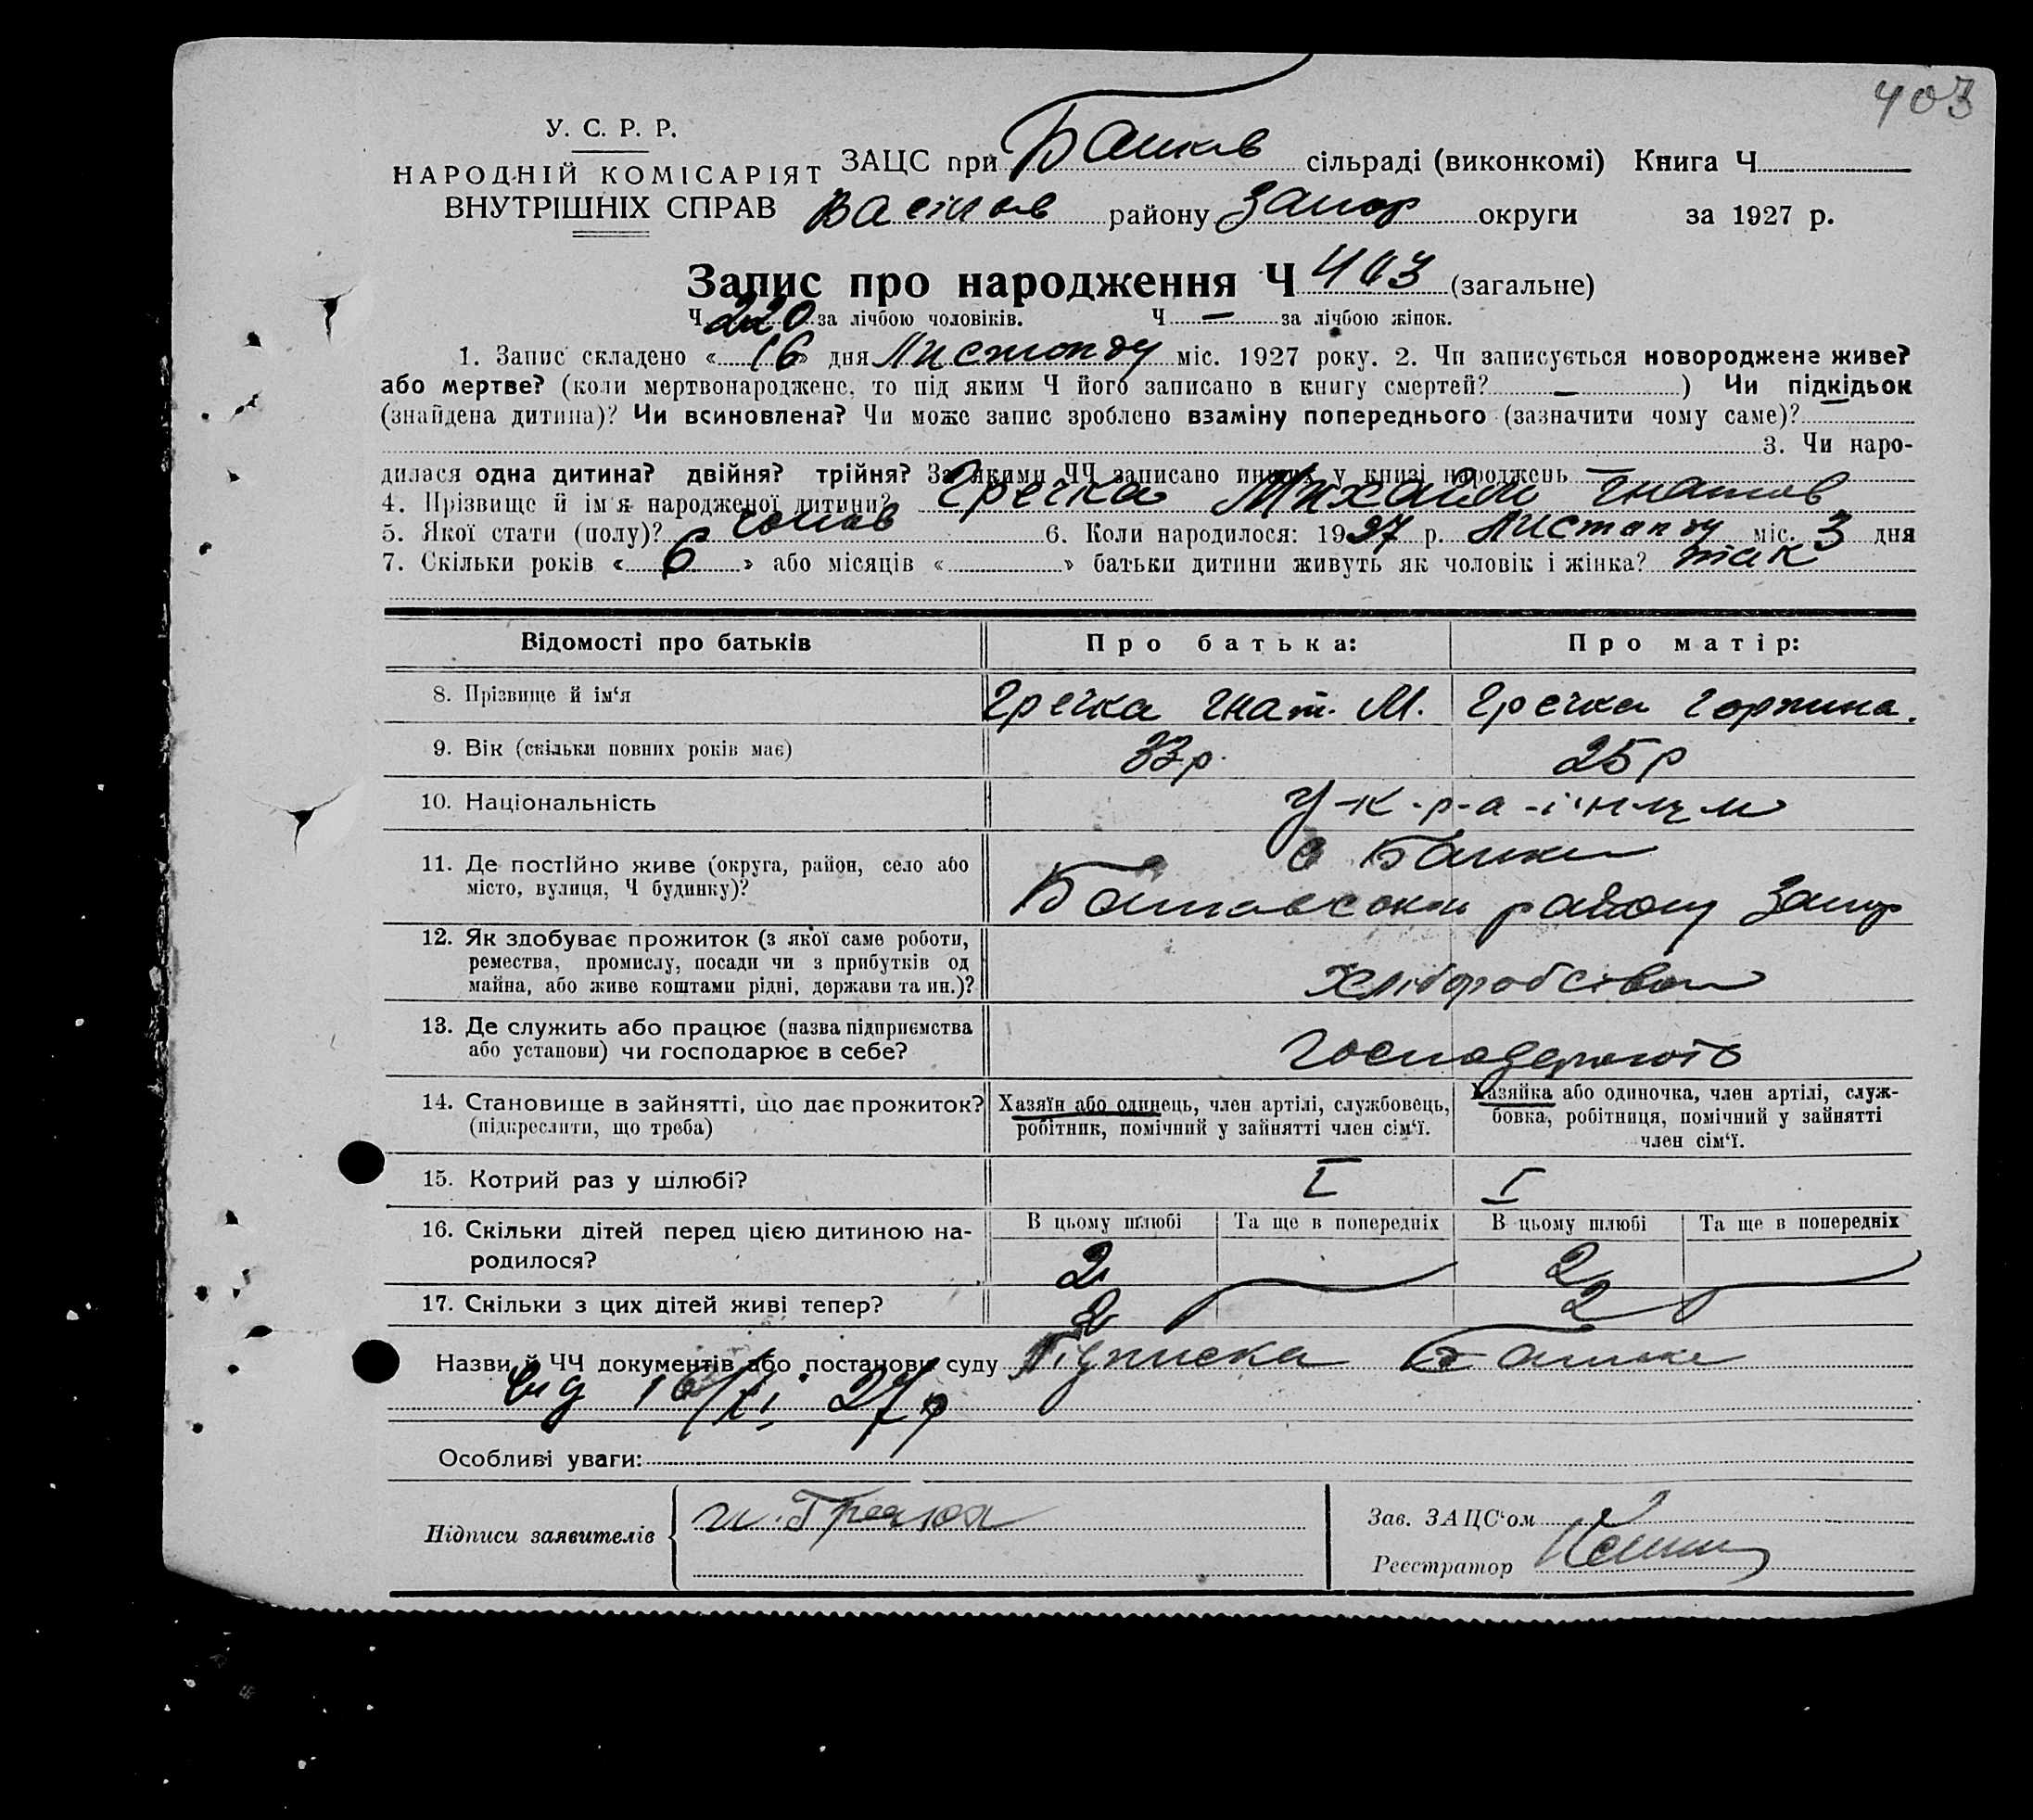 403
У. С. Р. Р.
НАРОДНІЙ КОМІСАРІЯТ
ВНУТРІШНІХ СПРАВ
ЗАЦС при сільраді (виконкомі) Книга Ч
Васілів району Запор округи за 1927 р.
Запис про народження Ч 403 (загальне)
Ч 220 за лічбою чоловіків. Ч — за лічбою жінок.
1. Запис складено «16» дня Листопаду міс. 1927 року. 2. Чи записується новороджене живе?
або мертве? (коли мертвонароджене, то під яким Ч його записано в книгу смертей? — ) Чи підкідьок
(знайдена дитина)? Чи всиновлена? Чи може запис зроблено взаміну попереднього (зазначити чому саме)?
3. Чи наро-
дилася одна дитина? двійня? трійня? За якими ЧЧ записано инших у книзі народжень —
4. Прізвище й ім'я народженої дитини? Гречка Михайло Гнатов
5. Якої стати (полу)? чолов 6. Коли народилося: 1927 р. Листопаду міс. 3 дня
7. Скільки років «6» або місяців « » батьки дитини живуть як чоловік і жінка? так
Відомості про батьків Про батька: Про матір:
8. Прізвище й ім'я Гречка Гнат. М. Гречка Горпина.
9. Вік (скільки повних років має) 33 р. 25 р
10. Національність У-к-р-а-ї-нци
11. Де постійно живе (округа, район, село або
місто, вулиця, Ч будинку)?
району Запор
12. Як здобуває прожиток (з якої саме роботи,
ремества, промислу, посади чи з прибутків од
майна, або живе коштами рідні, держави та ин.)?
Хліборобством
13. Де служить або працює (назва підприємства
або установи) чи господарює в себе?
Господарюють
14. Становище в зайнятті, що дає прожиток?
(підкреслити, що треба)
Хазяїн або одинець, член артілі, службовець,
робітник, помічний у зайнятті член сім'ї.
Хазяйка або одиночка, член артілі, служ-
бовка, робітниця, помічний у зайнятті
член сім'ї.
15. Котрий раз у шлюбі? I I
16. Скільки дітей перед цією дитиною на-
родилося?
В цьому шлюбі Та ще в попередніх В цьому шлюбі Та ще в попередніх
2 2
17. Скільки з цих дітей живі тепер? 2 2
Назви й ЧЧ документів або постанови суду Підписка
від 16/XI 27 р
Особливі уваги:
Підписи заявителів
Зав. ЗАЦС'ом
Реєстратор